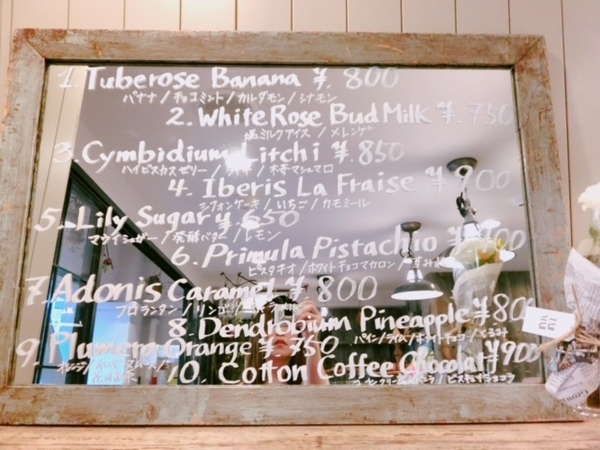 1. Tuberose Banana ¥. 800
バナナ / チョコミント / カルダモン / シナモン
2. White Rose Bud Milk ¥. 750
塩ミルクアイス / メレンゲ
3. Cymbidium Litchi ¥. 850
ハイビスカスゼリー / ライチ / マシュマロ
4. Iberis La Fraise ¥ 900
シフォンケーキ / いちご / カモミール
5. Lily Sugary 650
マウイシュガー / 発酵バター / レモン
6. Primula Pistachio ¥ 900
ピスタチオ / ホワイトチョコマカロン / すみれ
7. Adonis Caramel ¥ 800
フロランタン / リンゴ /
8. Dendrobium Pineapple ¥ 800
パイン / ライム / ホワイトチョコ / くるみ
9. Plumeria Orange ¥. 750
オレンジ /
10. Cotton Coffee Chocolat ¥ 900